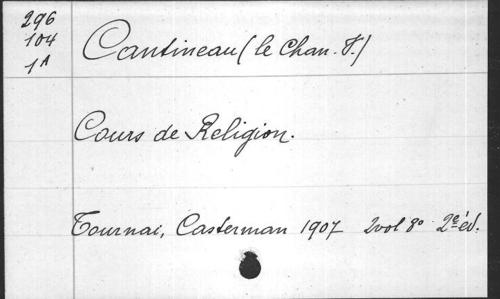 296
104
1A
Cantineau (le Chan. F.)
Cours de Religion.
Tournai, Casterman 1907 2vol 8º 2e éd.